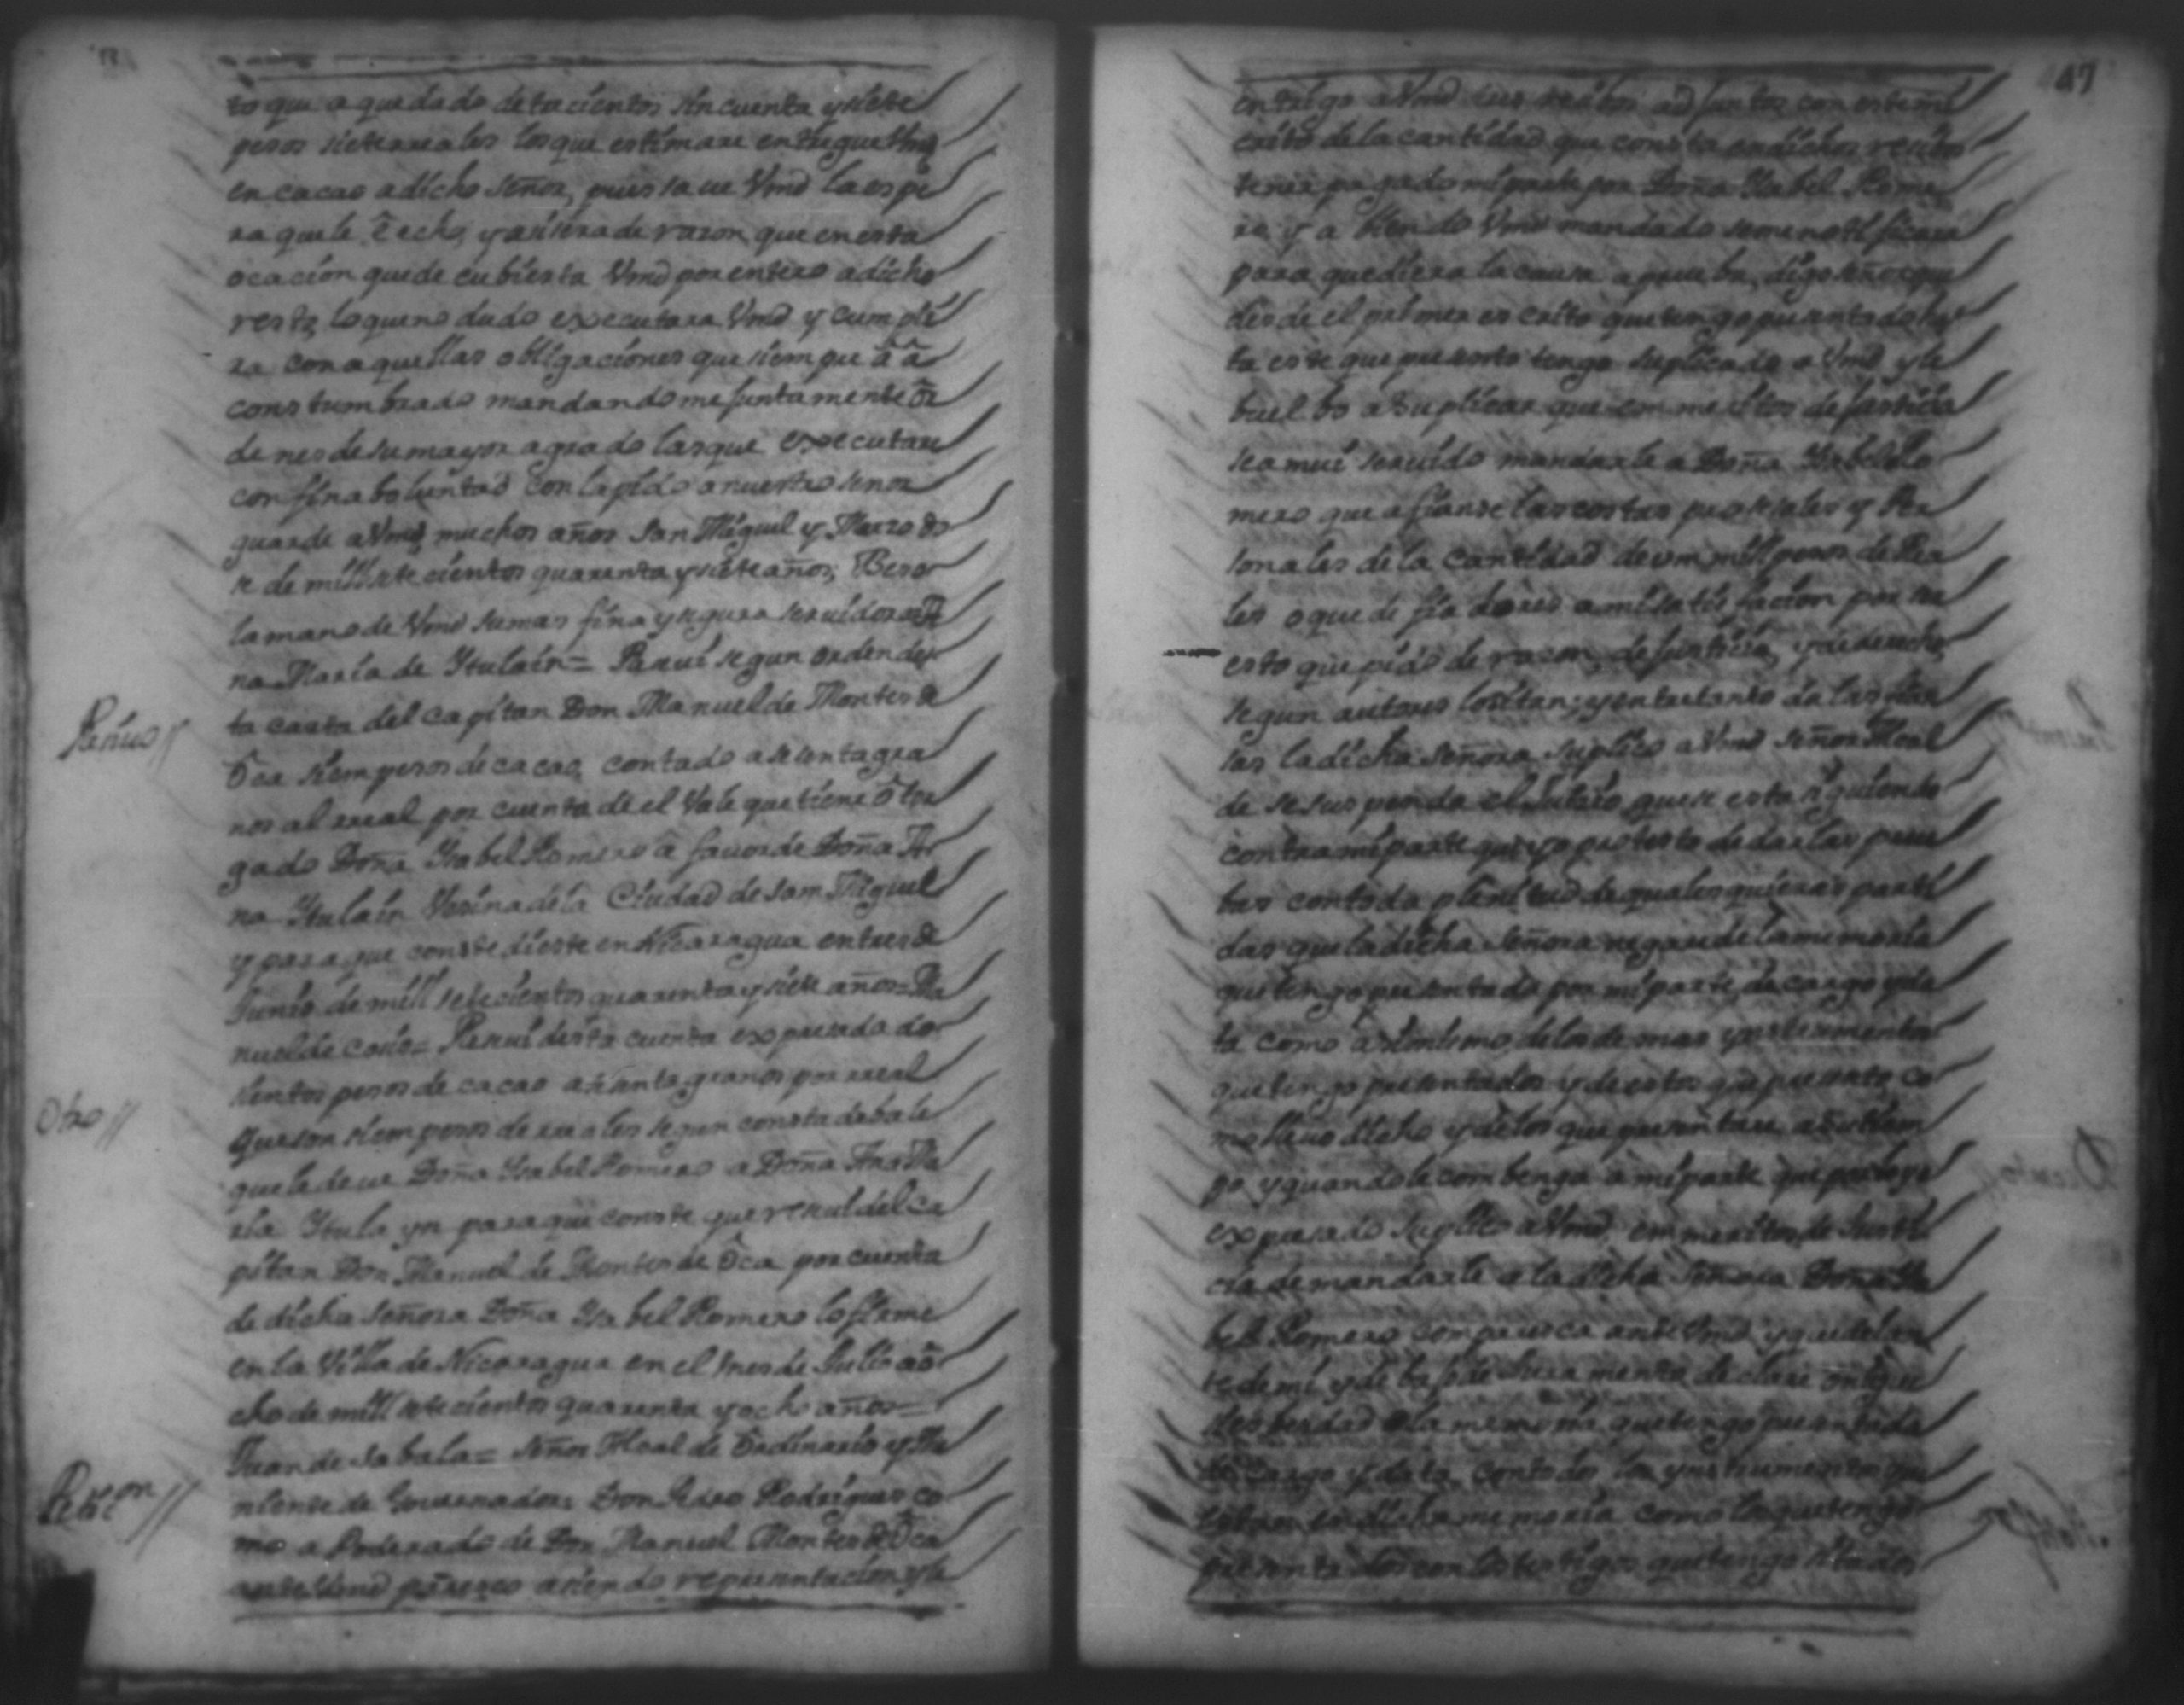 to que a quedado de tacientos sincuenta y siete
pesos siete rreales los que estimare entregue Vmd
en cacao a dicho señor, pues saue Vmd la espe
ra que le e echo, y asi sera de razon que en esta
ocacion quede cubierta Vmd por entero a dicho
resto, lo que no dudo executara Vmd y cumpli
ra con aquellas obligaciones que siempre â â
constumbrado mandandome juntamente ôr
denes de su mayor agrado las que executare
con fina boluntad con la pido a nuestro señor
guarde a Vmd muchos años San Miguel y Marzo do
se de mill sete cientos quarenta y siete años; Beso
la mano de Vmd su mas fina y segura seruidora
na Maria de Ytulain= Reciui segun orden de es
ta carta del Capitan Don Manuel de Montes de
Reciuo//
Ôca siem pesos de cacao contado a sesenta gra
nos al rreal por cuenta de el Vale que tiene ôtor
gado Doña Ysabel Romero â fauor de Doña An
na Ytulain Vesina de la Ciudad de Sam Miguel
y para que conste di este en Nicaragua en tres de
Junio de mill setecientos quarenta y siete años= Ma
nuel de Cosio= Reciui desta cuenta expresada do
Otro//
sientos pesos de cacao a sesenta granos por rreal
que son siem pesos de rreales segun consta de bale
que le deue Doña Ysabel Romero a Doña Ana Ma
ria Ytulayn para que conste que reciui del Ca
pitan Don Manuel de Montes de Ôca por cuenta
de dicha Señora Doña Ysabel Romero lo firme
en la Villa de Nicaragua en el mes de Julio a ô
cho de mill setecientos quarenta y ocho años=
Juan de Sabala= Señor Alcalde Ôrdinario y The
Peticon//
niente de Gouernador; Don Pedro Rodrigues co
mo a Poderado de Don Manuel Montes de Ôca
ante Vmd paresco asiendo representacion y le
47
entrego a Vmd sus resibos adjuntos con este mi
escrito de la cantidad que consta en dichos resibos
tener pagado mi parte por Doña Ysabel Rome
ro y a biendo Vmd mandado se me notificara
para que diera la causa a prueba, digo señor que
desde el primer escrito que tengo presentado has
ta este que presento tengo suplicado a Vmd y le
buelbo a suplicar que em meritos de justicia
sea mui seruido mandarle a Doña Ysabel Ro
mero que afianse las costas prosesales y Per
sonales de la cantidad de vm mill pesos de Rea
les o que de fiadores a mi satisfacion por ser
esto que pido de razon, de justicia, y de derecho
segun autores lo sitan; y entretanto da las fian
sas la dicha Señora suplico a Vmd Señor Alcal
de se suspenda el Juisio que se esta siguiendo
contra mi parte que yo protesto de dar las prue
bas con toda plenitud de qualesquieras parti
das que la dicha Señora negare de la memoria
que tengo presentada por mi parte de cargo y da
ta como asimismo de los demas ynstrumentos
que tengo presentados y de estos que presento co
mo lleuo dicho y de los que presentare a su tiem
po y quando le combenga a mi parte que por lo ya
expresado suplico a Vmd em meritos de Justi
cia de mandarle a la dicha Señora Doña Ysa
bel Romero comparesca ante Vmd y que delan
te de mi y de bajo de Juramento declare
si es berdad la memoria que tengo presentada
de cargo y data con todos los ynstrumentos que
en dicha memoria como los que tengo
presentados con los testigos que tengo sitados